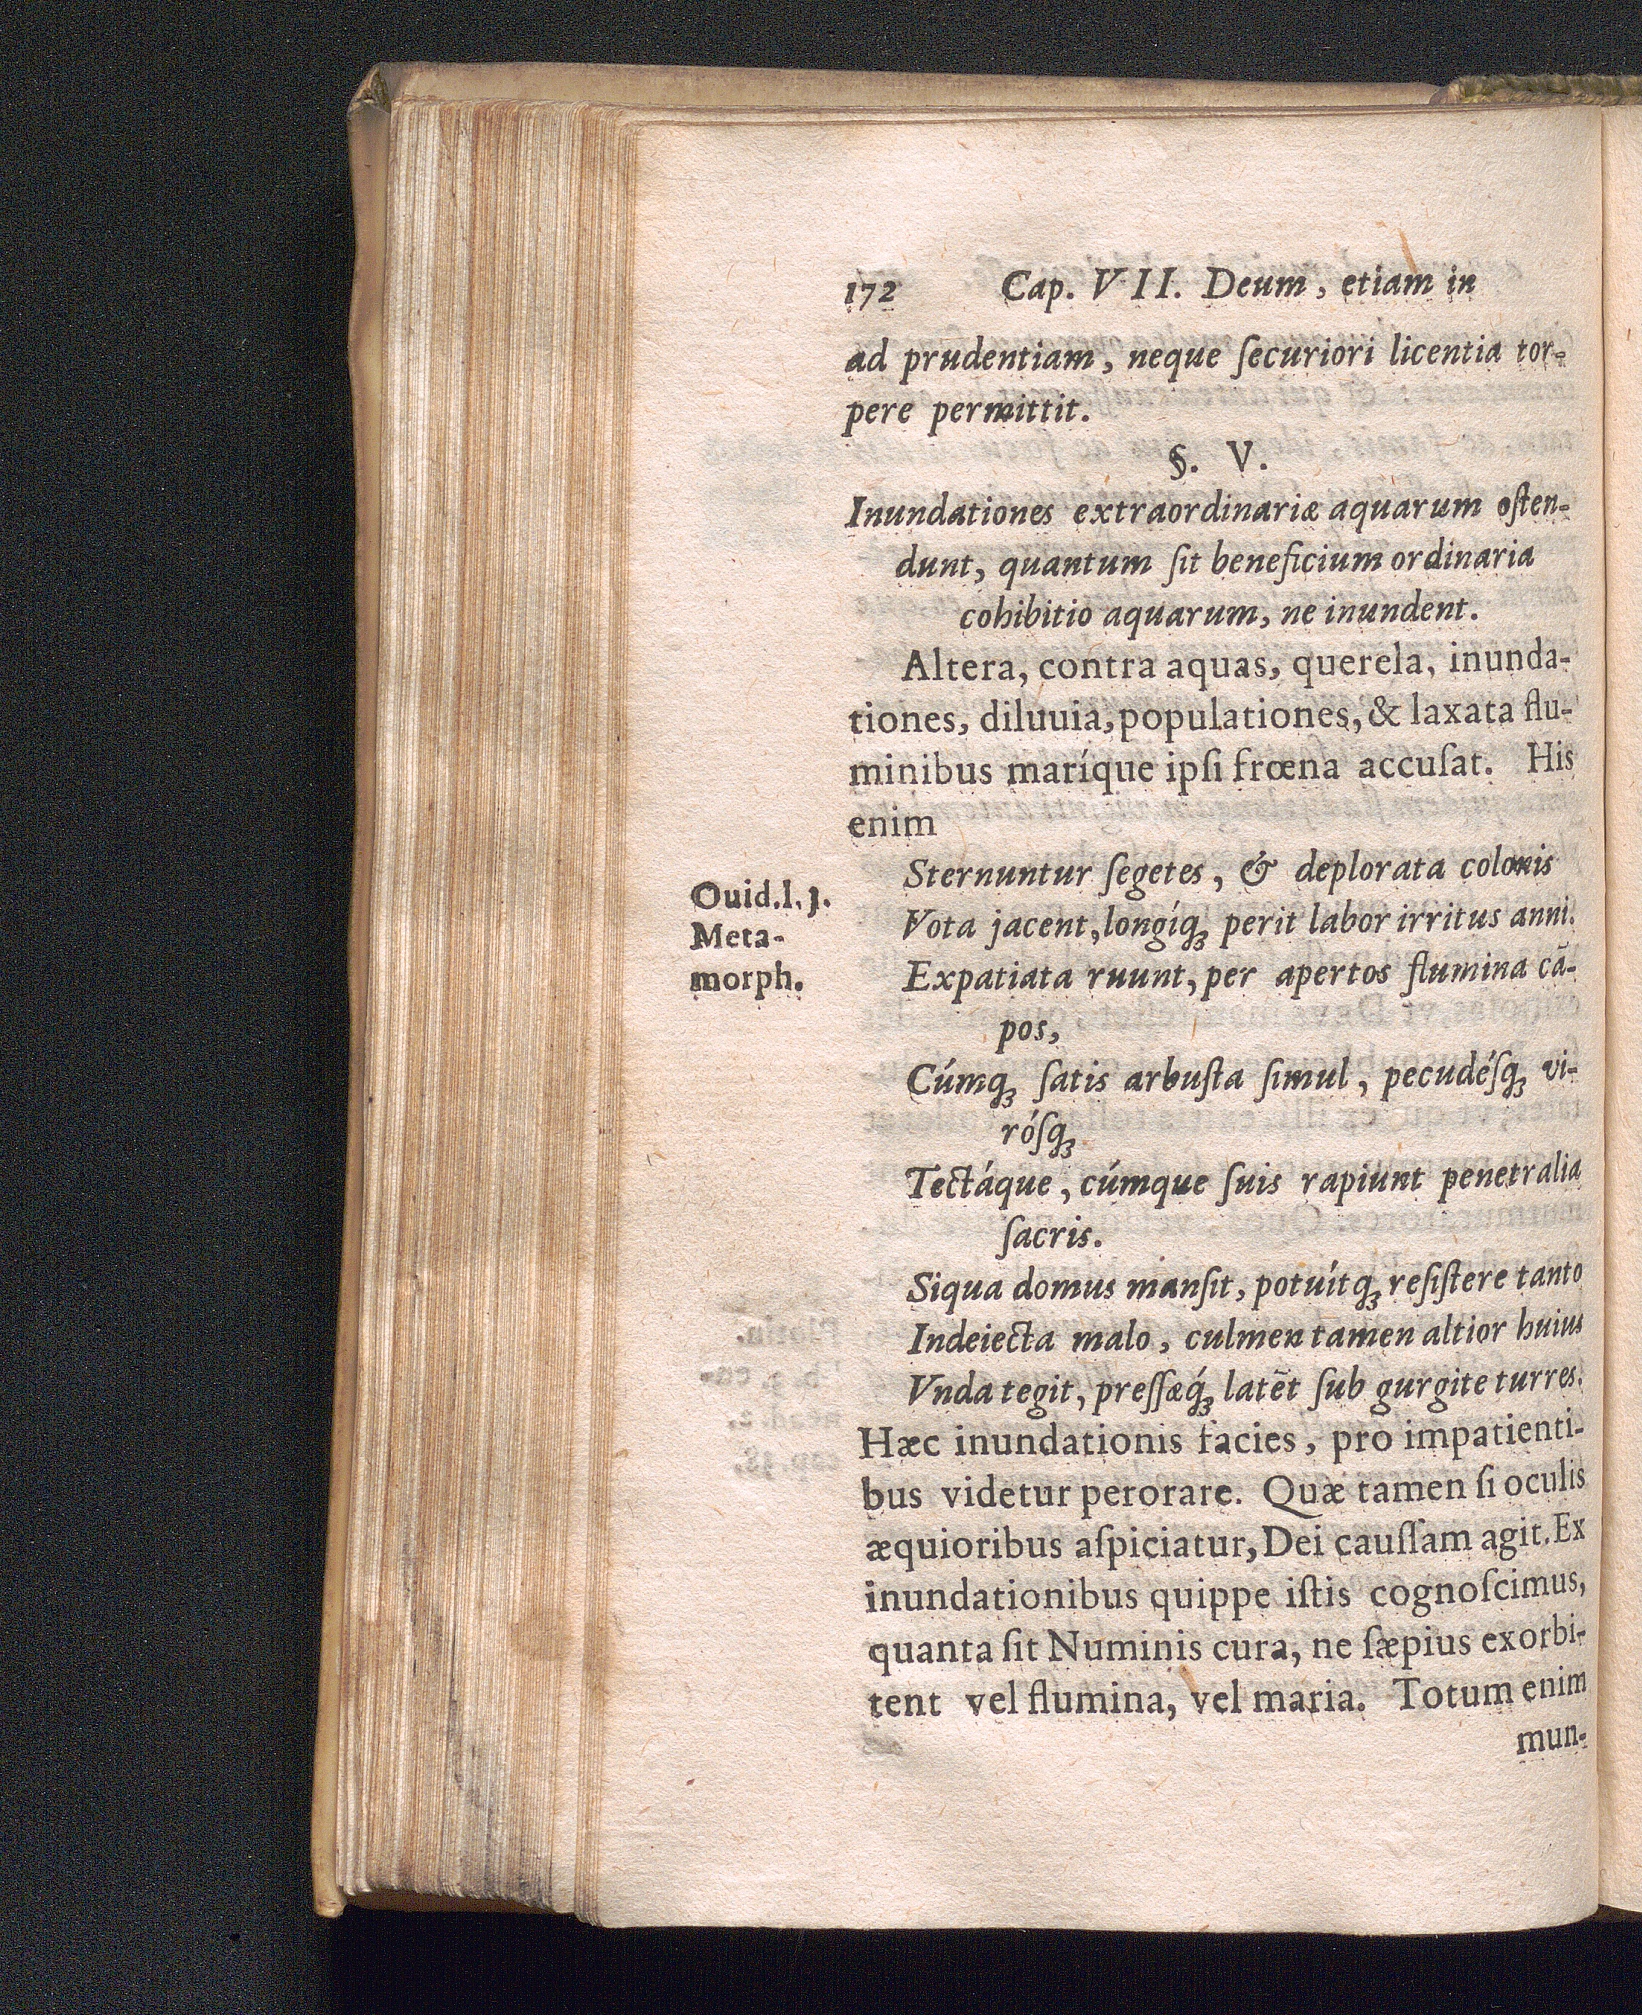 172 Cap. VII. Deum, etiam in
ad prudentiam, neque ſecuriori licentia tor-
pere permittit.
§. V.
Inundationes extraordinariæ aquarum oſten-
dunt, quantum ſit beneficium ordinaria
cohibitio aquarum, ne inundent.
Altera, contra aquas, querela, inunda-
tiones, diluuia, populationes, & laxata flu-
minibus maríque ipſi frœna accuſat. His
enim
Sternuntur ſegetes, & deplorata colonis
Ouid.l.j.
Meta-
morph.
Vota jacent, longíqꝫ perit labor irritus anni.
Expatiata ruunt, per apertos flumina cā-
pos,
Cúmqꝫ ſatis arbuſta ſimul, pecudéſqꝫ vi-
róſqꝫ
Tectáque, cúmque ſuis rapiunt penetralia
ſacris.
Siqua domus manſit, potuítqꝫ reſiſtere tanto
Indeiecta malo, culmen tamen altior huius
Vnda tegit, preſſæq́ꝫ latēt ſub gurgite turres.
Hæc inundationis facies, pro impatienti-
bus videtur perorare. Quæ tamen ſi oculis
æquioribus aſpiciatur, Dei cauſſam agit. Ex
inundationibus quippe iſtis cognoſcimus,
quanta ſit Numinis cura, ne ſæpius exorbi-
tent vel flumina, vel maria. Totum enim
mun-